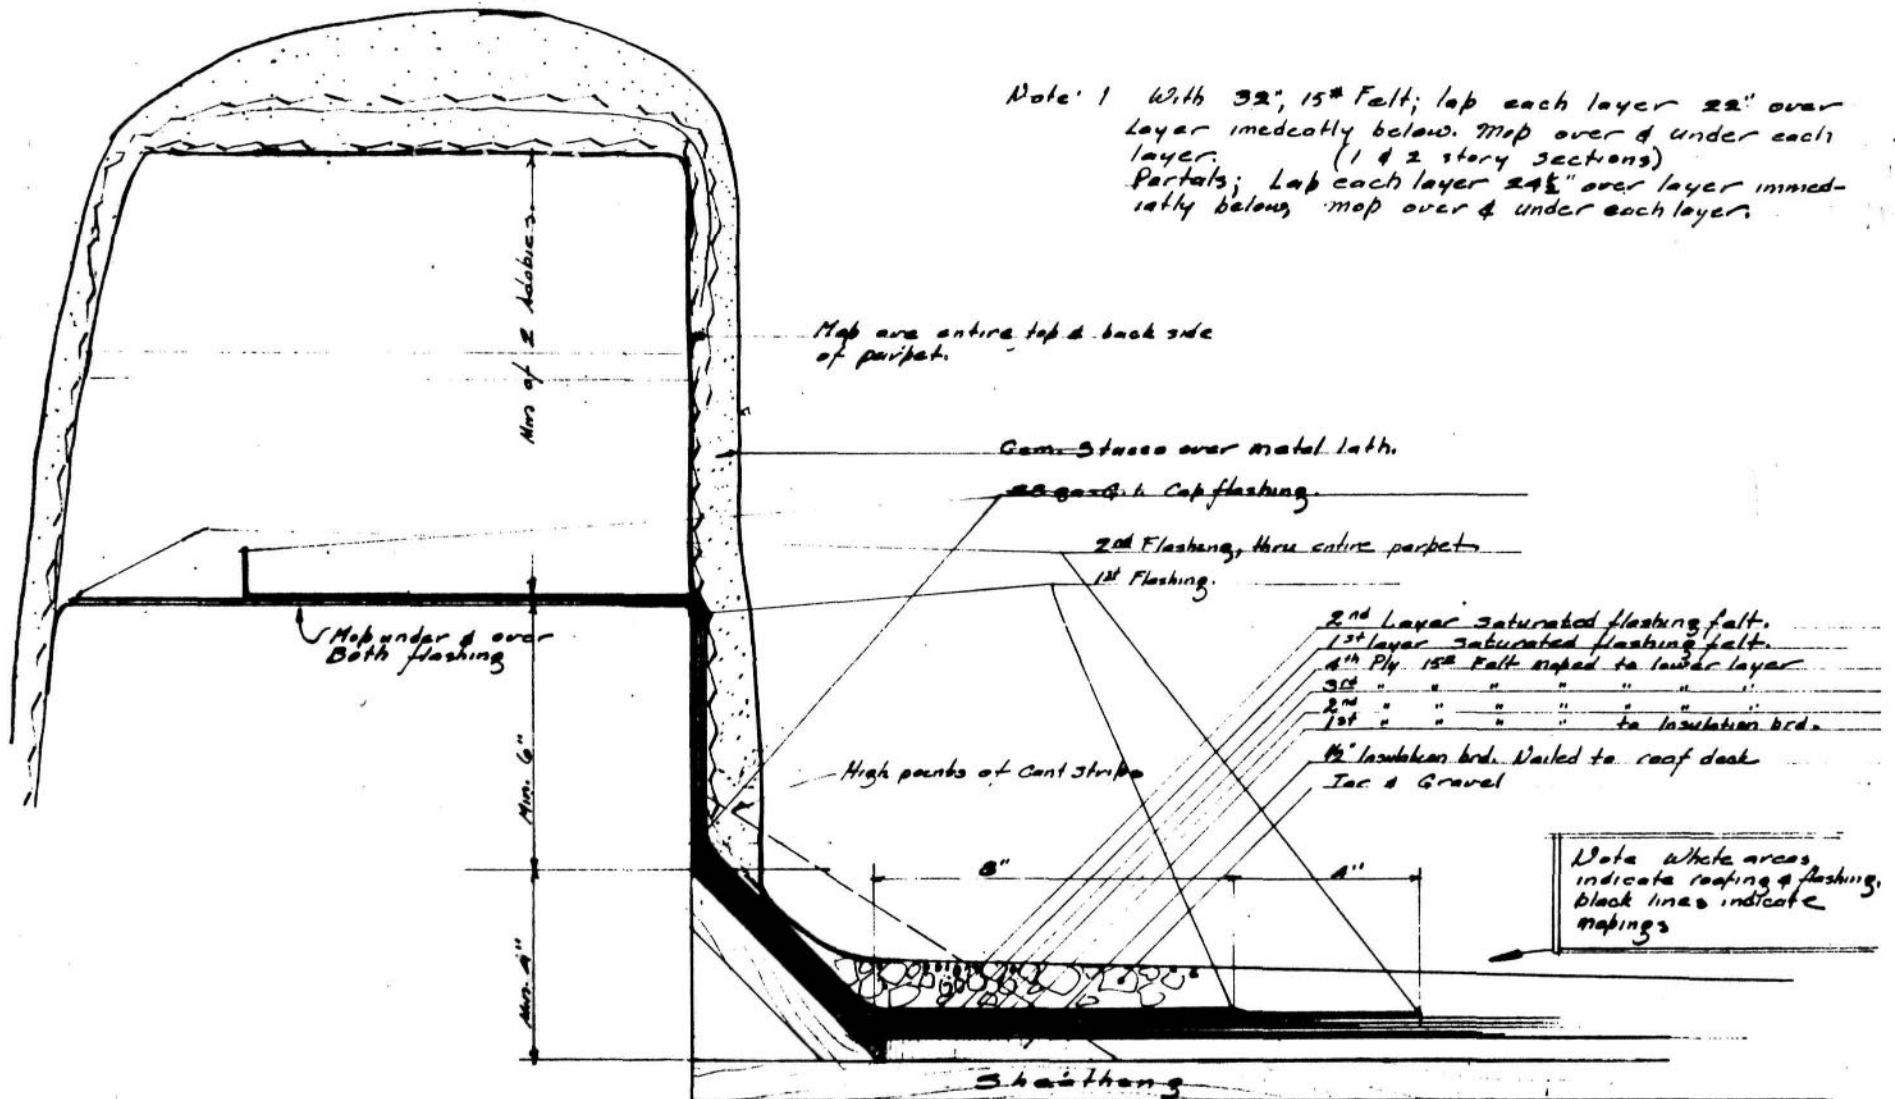 Note: 1 With 32", 15# Felt; lap each layer 22" over
Layer imedeatly below. Mop over & under each
layer. (1 & 2 story sections)
Portals; Lap each layer 24½" over layer immed-
iatly below, mop over & under each layer.
Min of 2 Adobies.
Mop are entire top & back side
of parpet.
Cem. Stucco over metal lath.
Cap flashing.
2nd Flashing, thru entire parpet
1st Flashing.
Mop under & over
Both flashing
2nd Layer saturated flashing felt.
1st layer saturated flashing felt.
4th Ply 15# Felt moped to lower layer
3rd " " " " " " "
2nd " " " " " " "
1st " " " " to Insulation brd.
½" Insulation brd. Nailed to roof deck
Tar & Gravel
Min. 6"
High points of Cant Strips
8"
4"
Note White areas
indicate roofing & flashing,
black lines indicate
mopings
Min. 4"
Sheathing